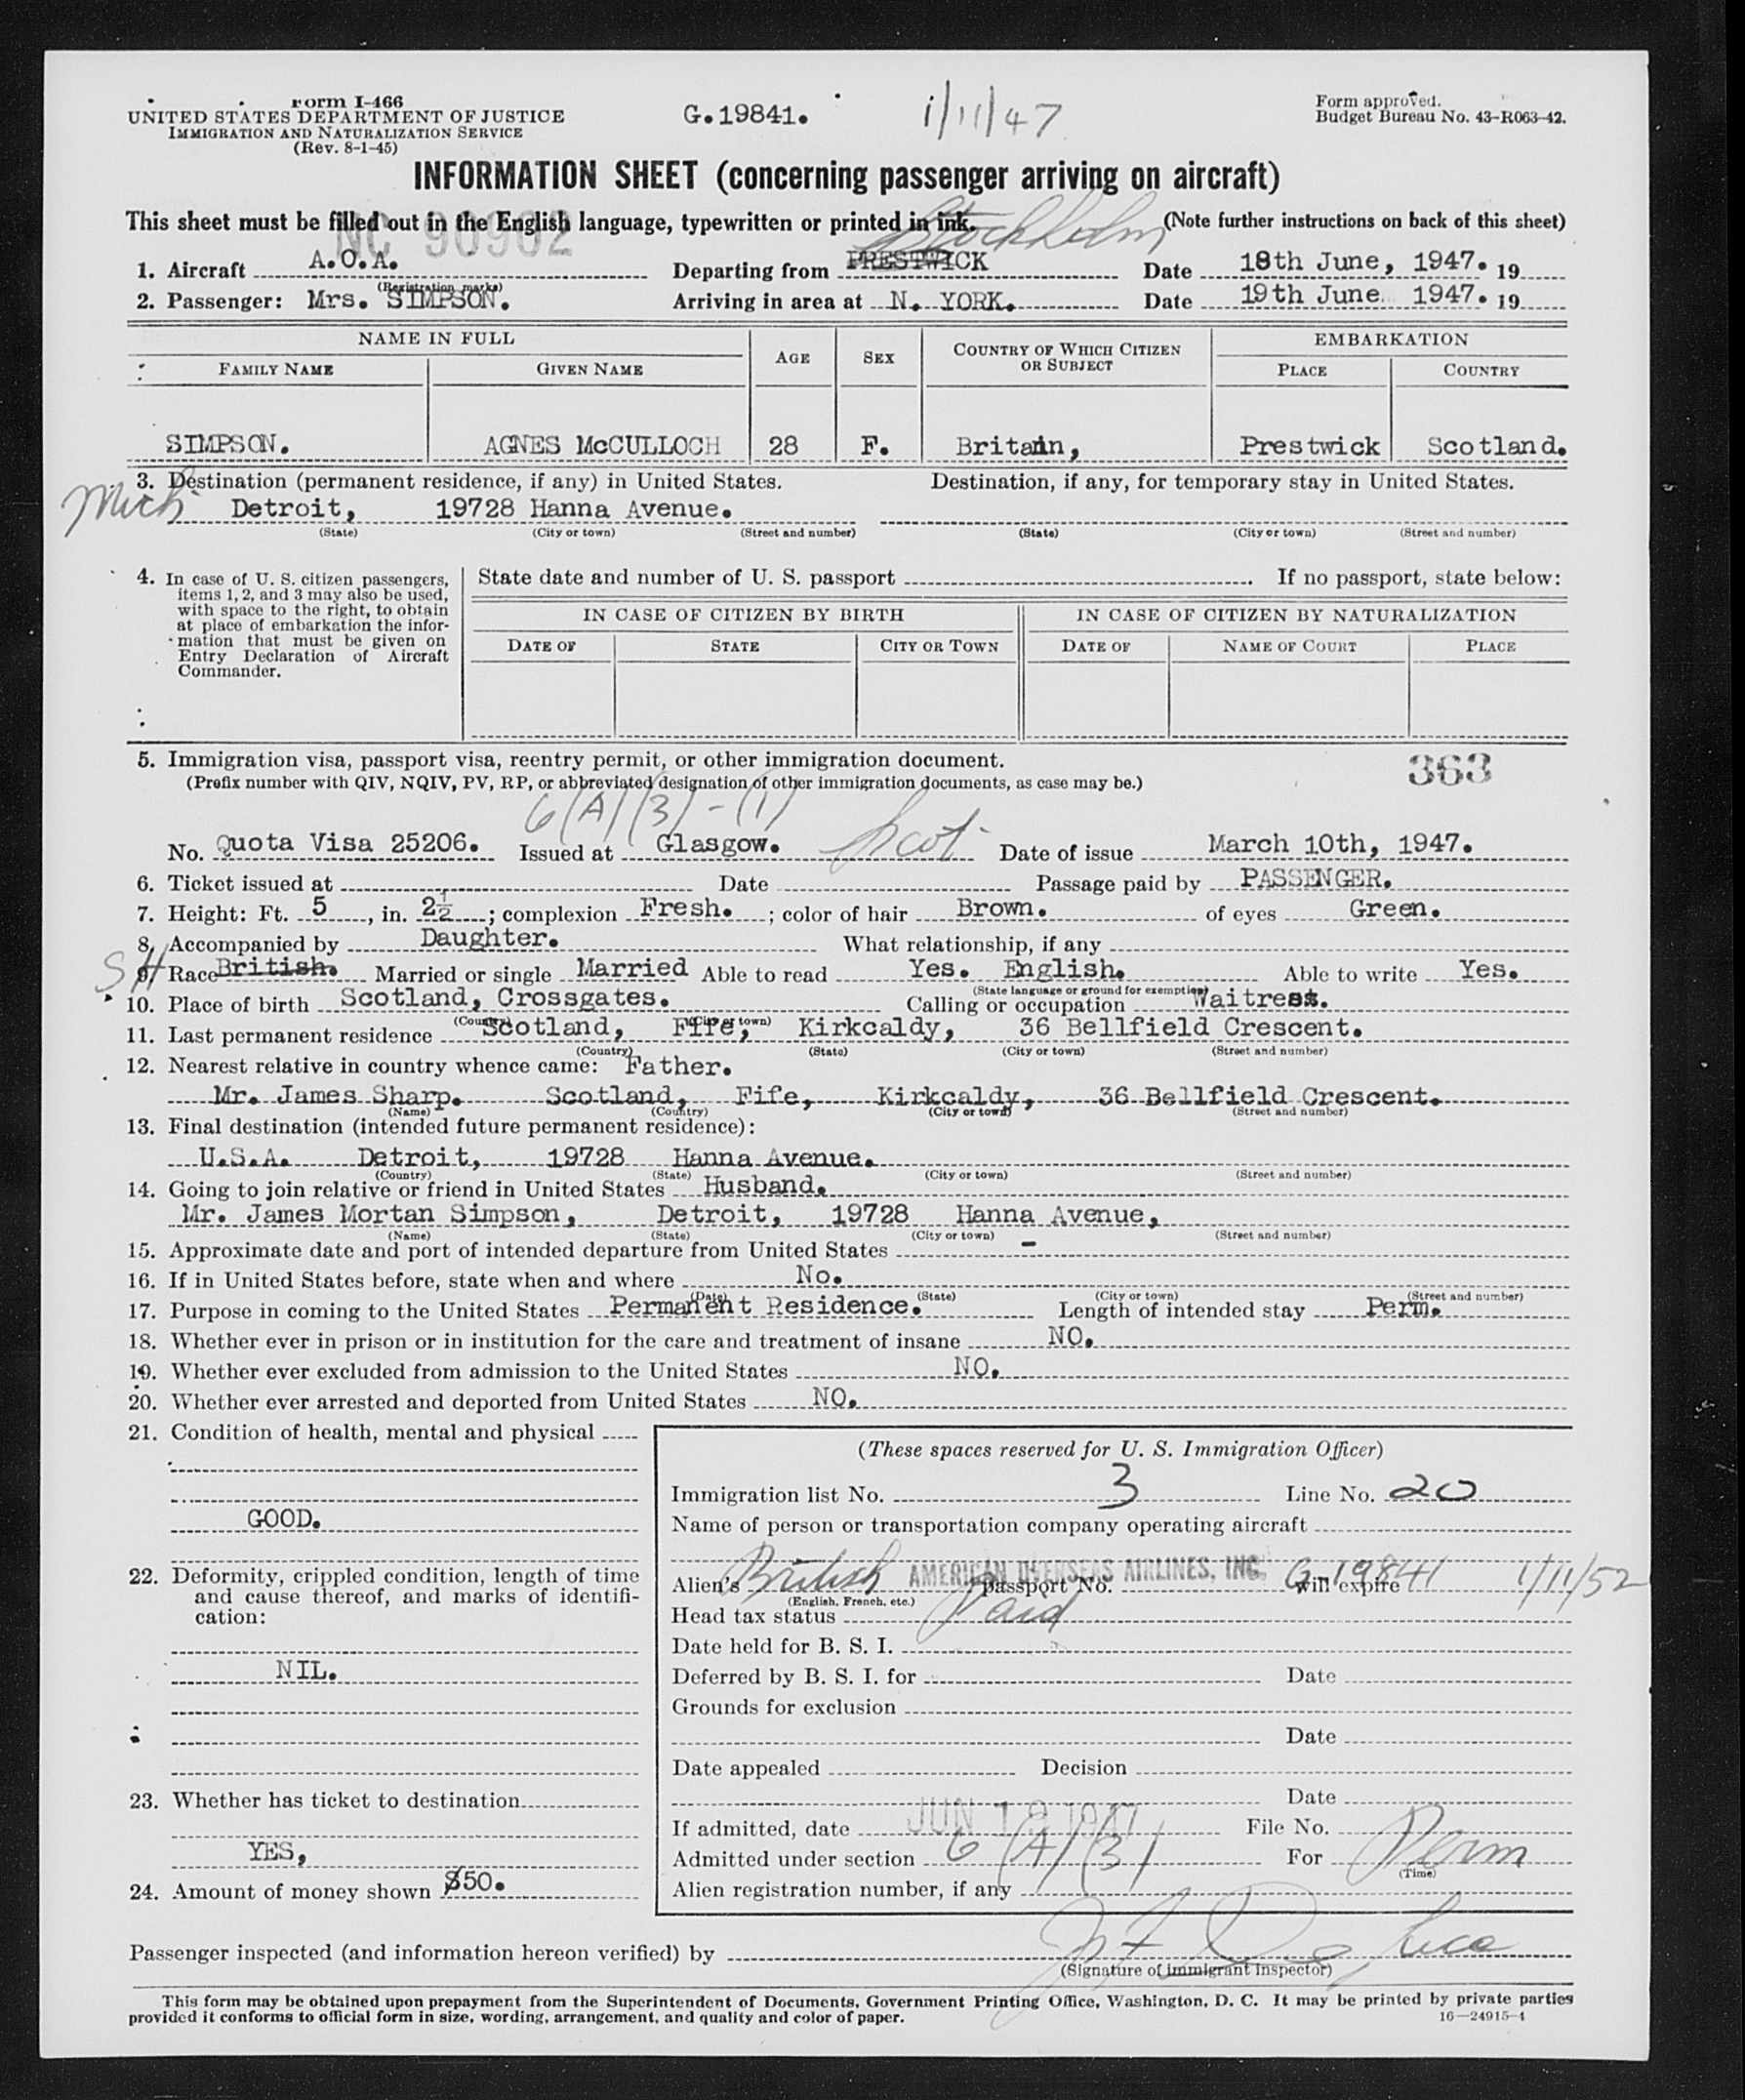 Form I-466
UNITED STATES DEPARTMENT OF JUSTICE
IMMIGRATION AND NATURALIZATION SERVICE
(Rev. 8-1-45)
G.19841.
1/11/47
Form approved.
Budget Bureau No. 43-R063-42.
INFORMATION SHEET (concerning passenger arriving on aircraft)
This sheet must be filled out in the English language, typewritten or printed in ink. (Note further instructions on back of this sheet)
NC 90902
Stockholm
1. Aircraft A.O.A. Departing from PRESTWICK Date 18th June, 1947. 19
(Registration marks)
2. Passenger: Mrs. SIMPSON. Arriving in area at N. YORK. Date 19th June 1947. 19
NAME IN FULL AGE SEX COUNTRY OF WHICH CITIZEN OR SUBJECT EMBARKATION
FAMILY NAME GIVEN NAME PLACE COUNTRY
SIMPSON. AGNES McCULLOCH 28 F. Britain, Prestwick Scotland.
3. Destination (permanent residence, if any) in United States. Destination, if any, for temporary stay in United States.
Mich. Detroit, 19728 Hanna Avenue.
(State) (City or town) (Street and number) (State) (City or town) (Street and number)
4. In case of U. S. citizen passengers, items 1, 2, and 3 may also be used, with space to the right, to obtain at place of embarkation the information that must be given on Entry Declaration of Aircraft Commander.
State date and number of U. S. passport . If no passport, state below:
IN CASE OF CITIZEN BY BIRTH IN CASE OF CITIZEN BY NATURALIZATION
DATE OF STATE CITY OR TOWN DATE OF NAME OF COURT PLACE
5. Immigration visa, passport visa, reentry permit, or other immigration document.
363
(Prefix number with QIV, NQIV, PV, RP, or abbreviated designation of other immigration documents, as case may be.)
6(A)(3)-(1)
No. Quota Visa 25206. Issued at Glasgow. Scot. Date of issue March 10th, 1947.
6. Ticket issued at Date Passage paid by PASSENGER.
7. Height: Ft. 5, in. 2½; complexion Fresh.; color of hair Brown. of eyes Green.
8. Accompanied by Daughter. What relationship, if any
SH
9. Race British. Married or single Married Able to read Yes. English. Able to write Yes.
(State language or ground for exemption)
10. Place of birth Scotland, Crossgates. Calling or occupation Waitress.
(Country) (City or town)
11. Last permanent residence Scotland, Fife, Kirkcaldy, 36 Bellfield Crescent.
(Country) (State) (City or town) (Street and number)
12. Nearest relative in country whence came: Father.
Mr. James Sharp. Scotland, Fife, Kirkcaldy, 36 Bellfield Crescent.
(Name) (Country) (City or town) (Street and number)
13. Final destination (intended future permanent residence):
U.S.A. Detroit, 19728 Hanna Avenue.
(Country) (State) (City or town) (Street and number)
14. Going to join relative or friend in United States Husband.
Mr. James Mortan Simpson, Detroit, 19728 Hanna Avenue,
(Name) (State) (City or town) (Street and number)
15. Approximate date and port of intended departure from United States -
16. If in United States before, state when and where No.
(Date) (State) (City or town) (Street and number)
17. Purpose in coming to the United States Permanent Residence. Length of intended stay Perm.
18. Whether ever in prison or in institution for the care and treatment of insane NO.
19. Whether ever excluded from admission to the United States NO.
20. Whether ever arrested and deported from United States NO.
21. Condition of health, mental and physical
GOOD.
22. Deformity, crippled condition, length of time and cause thereof, and marks of identification:
NIL.
23. Whether has ticket to destination
YES,
24. Amount of money shown $50.
(These spaces reserved for U. S. Immigration Officer)
Immigration list No. 3 Line No. 20
Name of person or transportation company operating aircraft
AMERICAN OVERSEAS AIRLINES, INC.
Alien's British passport No. G-19841 will expire 1/11/52
(English, French, etc.)
Head tax status Paid
Date held for B. S. I.
Deferred by B. S. I. for Date
Grounds for exclusion
Date
Date appealed Decision
Date
If admitted, date JUN 19 1947 File No.
Admitted under section 6(A)(3) For Perm
(Time)
Alien registration number, if any
Passenger inspected (and information hereon verified) by
(Signature of immigrant inspector)
This form may be obtained upon prepayment from the Superintendent of Documents, Government Printing Office, Washington, D. C. It may be printed by private parties
provided it conforms to official form in size, wording, arrangement, and quality and color of paper.
16—24915-1